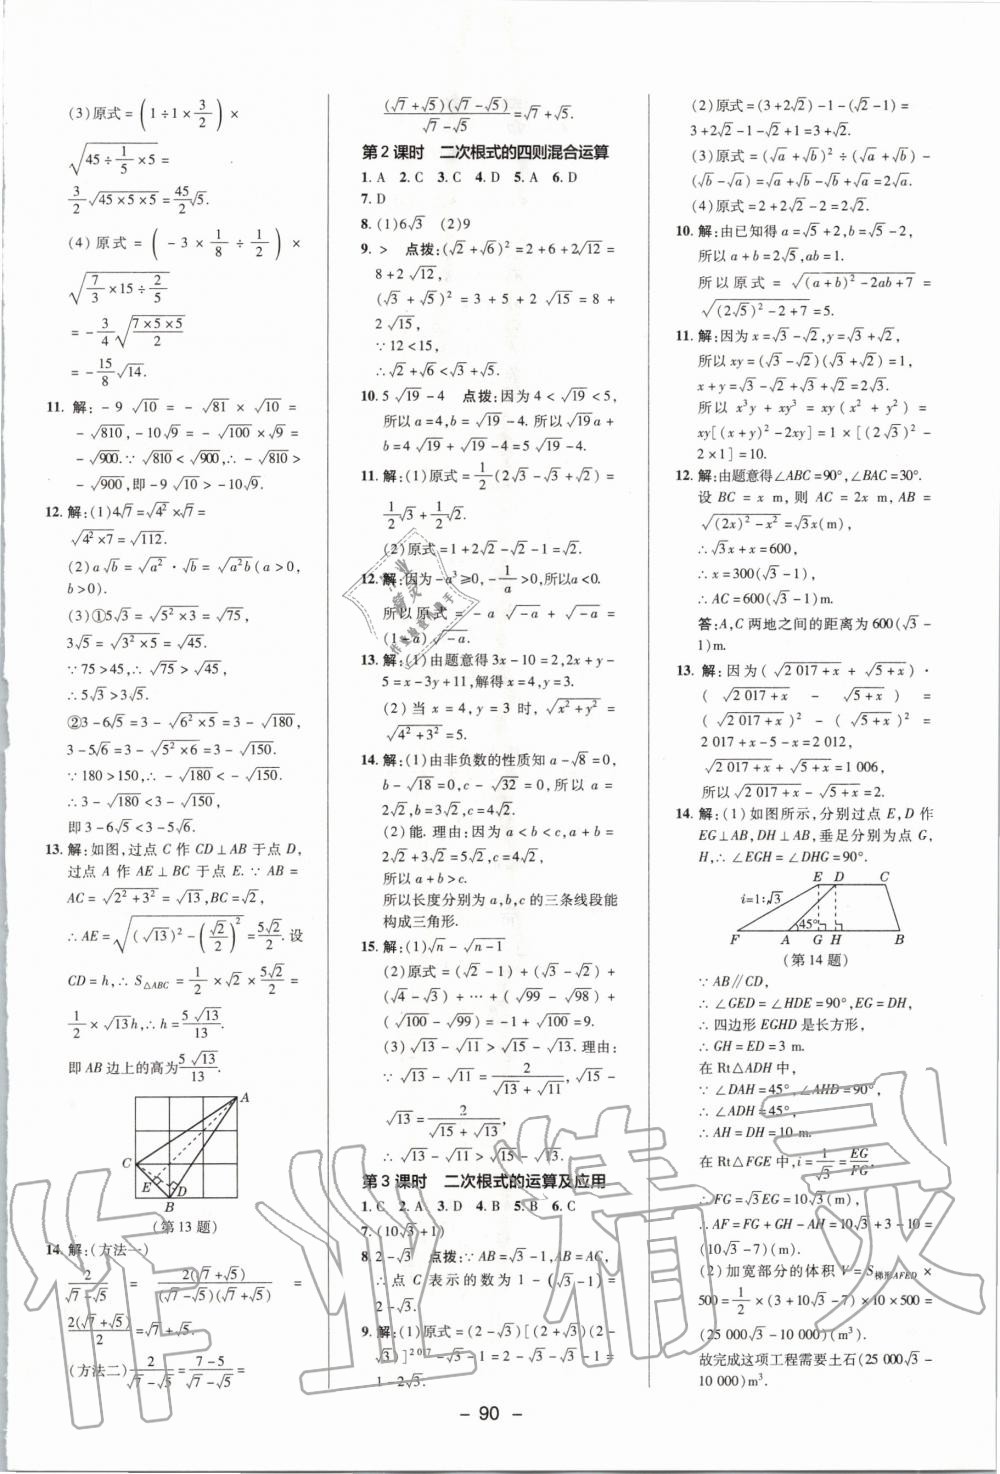 (3)原式=(1÷1×3/2)×
√(45÷1/5×5)=
3/2√(45×5×5)=45/2√5.
(4)原式=(-3×1/8÷1/2)×
√(7/3×15÷2/5)
=-3/4√(7×5×5/2)
=-15/8√14.
11. 解:-9√10=-√81×√10=
-√810,-10√9=-√100×√9=
-√900.∵√810<√900,∴-√810>
-√900,即-9√10>-10√9.
12. 解:(1)4√7=√4²×√7=
√(4²×7)=√112.
(2)a√b=√a²·√b=√(a²b)(a>0,
b>0).
(3)①5√3=√(5²×3)=√75,
3√5=√(3²×5)=√45.
∵75>45,∴√75>√45,
∴5√3>3√5.
②3-6√5=3-√(6²×5)=3-√180,
3-5√6=3-√(5²×6)=3-√150.
∵180>150,∴-√180<-√150,
∴3-√180<3-√150,
即3-6√5<3-5√6.
13. 解:如图,过点C作CD⊥AB于点D,
过点A作AE⊥BC于点E.∵AB=
AC=√(2²+3²)=√13,BC=√2,
∴AE=√((√13)²-(√2/2)²)=5√2/2.设
CD=h,∴S△ABC=1/2×√2×5√2/2=
1/2×√13h,∴h=5√13/13.
即AB边上的高为5√13/13.
A
C
E D
B
(第13题)
14. 解:(方法一)
2/(√7-√5)=2(√7+√5)/((√7-√5)(√7+√5))=
2(√7+√5)/2=√7+√5.
(方法二)2/(√7-√5)=(7-5)/(√7-√5)=
(√7+√5)(√7-√5)/(√7-√5)=√7+√5.
第2课时 二次根式的四则混合运算
1. A 2. C 3. C 4. D 5. A 6. D
7. D
8. (1)6√3 (2)9
9. > 点拨:(√2+√6)²=2+6+2√12=
8+2√12,
(√3+√5)²=3+5+2√15=8+
2√15,
∵12<15,
∴√2+√6<√3+√5.
10. 5√19-4 点拨:因为4<√19<5,
所以a=4,b=√19-4.所以√19a+
b=4√19+√19-4=5√19-4.
11. 解:(1)原式=1/2(2√3-√3+√2)=
1/2√3+1/2√2.
(2)原式=1+2√2-√2-1=√2.
12. 解:因为-a³≥0,-1/a>0,所以a<0.
所以原式=-a√-a+√-a=
(1-a)√-a.
13. 解:(1)由题意得3x-10=2,2x+y-
5=x-3y+11,解得x=4,y=3.
(2)当x=4,y=3时,√(x²+y²)=
√(4²+3²)=5.
14. 解:(1)由非负数的性质知a-√8=0,
b-√18=0,c-√32=0,所以a=
2√2,b=3√2,c=4√2.
(2)能.理由:因为a<b<c,a+b=
2√2+3√2=5√2>4√2,
所以a+b>c.
所以长度分别为a,b,c的三条线段能
构成三角形.
15. 解:(1)√n-√(n-1)
(2)原式=(√2-1)+(√3-√2)+
(√4-√3)+…+(√99-√98)+
(√100-√99)=-1+√100=9.
(3)√13-√11>√15-√13.理由:
∵√13-√11=2/(√13+√11),√15-
√13=2/(√15+√13),
∴√13-√11>√15-√13.
第3课时 二次根式的运算及应用
1. C 2. A 3. D 4. B 5. B 6. C
7. (10√3+1)
8. 2-√3 点拨:∵AB=√3-1,AB=AC,
∴点C表示的数为1-(√3-1)=
2-√3.
9. 解:(1)原式=(2-√3)[(2+√3)(2-
√3)]²⁰¹⁷-√3-1=2-√3-√3-1=
1-2√3.
(2)原式=(3+2√2)-1-(√2-1)=
3+2√2-1-√2+1=3+√2.
(3)原式=(√a+√b)²÷(√a+√b)-
(√b-√a)=√a+√b-√b+√a=2√a.
(4)原式=2+2√2-2=2√2.
10. 解:由已知得a=√5+2,b=√5-2,
所以a+b=2√5,ab=1.
所以原式=√((a+b)²-2ab+7)=
√((2√5)²-2+7)=5.
11. 解:因为x=√3-√2,y=√3+√2,
所以xy=(√3-√2)(√3+√2)=1,
x+y=√3-√2+√3+√2=2√3.
所以x³y+xy³=xy(x²+y²)=
xy[(x+y)²-2xy]=1×[(2√3)²-
2×1]=10.
12. 解:由题意得∠ABC=90°,∠BAC=30°.
设BC=x m,则AC=2x m,AB=
√((2x)²-x²)=√3x(m),
∴√3x+x=600,
∴x=300(√3-1),
∴AC=600(√3-1)m.
答:A,C两地之间的距离为600(√3-
1)m.
13. 解:因为(√(2 017+x)+√(5+x))·
(√(2 017+x)-√(5+x))=
(√(2 017+x))²-(√(5+x))²=
2 017+x-5-x=2 012,
√(2 017+x)+√(5+x)=1 006,
所以√(2 017+x)-√(5+x)=2.
14. 解:(1)如图所示,分别过点E,D作
EG⊥AB,DH⊥AB,垂足分别为点G,
H,∴∠EGH=∠DHG=90°.
E D C
i=1:√3
45°
F A G H B
(第14题)
∵AB∥CD,
∴∠GED=∠HDE=90°,EG=DH,
∴四边形EGHD是长方形,
∴GH=ED=3 m.
在Rt△ADH中,
∵∠DAH=45°,∠AHD=90°,
∴∠ADH=45°,
∴AH=DH=10 m.
在Rt△FGE中,i=1/√3=EG/FG,
∴FG=√3EG=10√3(m),
∴AF=FG+GH-AH=10√3+3-10=
(10√3-7)(m).
(2)加宽部分的体积V=S梯形AFED×
500=1/2×(3+10√3-7)×10×500=
(25 000√3-10 000)(m³).
故完成这项工程需要土石(25 000√3-
10 000)m³.
- 90 -
作业精灵